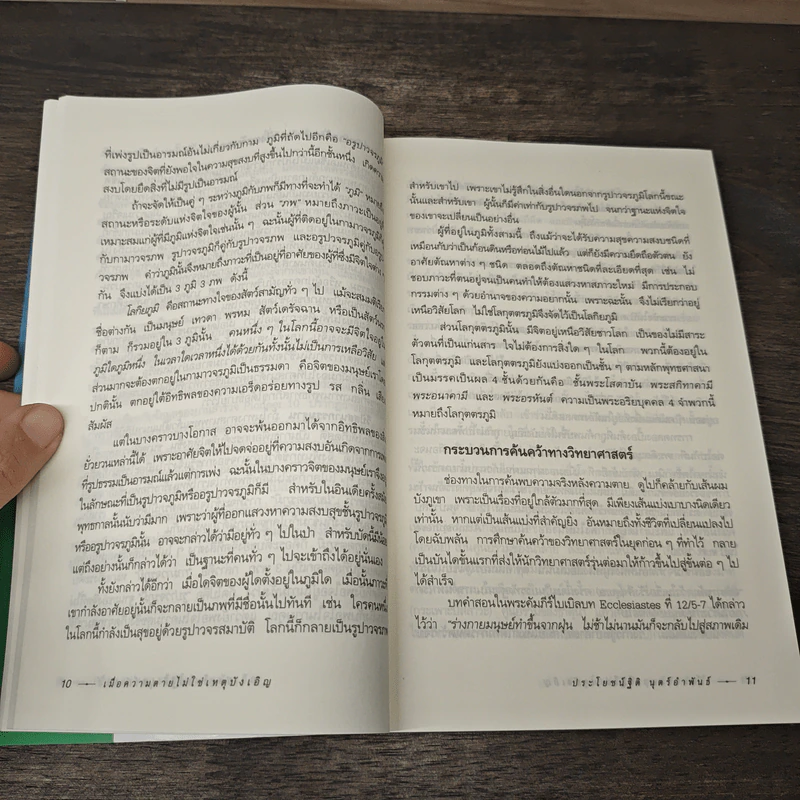 ที่เพ่งรูปเป็นอารมณ์อันไม่เกี่ยวกับกาม ภูมิที่ถัดไปอีกคือ "อรูปาวจรภูมิ
สถานะของจิตที่ยังพอใจในความสุขสงบที่สูงขึ้นไปกว่านี้อีกชั้นหนึ่ง
สงบโดยยึดสิ่งที่ไม่มีรูปเป็นอารมณ์
ถ้าจะจัดให้เป็นคู่ ๆ ระหว่างภูมิกับภพก็มีทางที่จะทำได้ "ภูมิ"
สถานะหรือระดับแห่งจิตใจของผู้นั้น ส่วน "ภพ" หมายถึงภาวะเป็นอยู่
เหมาะสมแก่ผู้ที่มีภูมิแห่งจิตใจเช่นนั้น ๆ ฉะนั้นผู้ที่ติดอยู่ในกามาวจรภูมิ
กับกามาวจรภพ รูปาวจรภูมิก็คู่กับรูปาวจรภพ และอรูปาวจรภูมิคู่กับอรูปา
วจรภพ คำว่าภูมินั้นจึงหมายถึงภาวะที่เป็นอยู่ที่อาศัยของผู้ที่ซึ่งมีจิตใจต่าง
กัน จึงแบ่งได้เป็น 3 ภูมิ 3 ภพ ดังนี้
โลกิยภูมิ คือสถานะทางใจของสัตว์สามัญทั่ว ๆ ไป แม้จะสมมติเรียก
ชื่อต่างกัน เป็นมนุษย์ เทวดา พรหม สัตว์เดรัจฉาน หรือเป็นสัตว์
ก็ตาม ก็รวมอยู่ใน 3 ภูมินั้น คนหนึ่ง ๆ ในโลกนี้อาจจะมีจิตใจอยู่ใน
ภูมิใดภูมิหนึ่ง ในเวลาใดเวลาหนึ่งได้ด้วยกันทั้งนั้นไม่เป็นการเหลือวิสัย
ส่วนมากจะต้องตกอยู่ในกามาวจรภูมิเป็นธรรมดา คือจิตของมนุษย์เรา
ปกตินั้น ตกอยู่ใต้อิทธิพลของความเอร็ดอร่อยทางรูป รส กลิ่น เสียง
สัมผัส
แต่ในบางคราวบางโอกาส อาจจะพ้นออกมาได้จากอิทธิพลของสิ่ง
ยั่วยวนเหล่านี้ได้ เพราะอาศัยจิตให้ไปจดจ่ออยู่ที่ความสงบอันเกิดจากการเพ่ง
ที่รูปธรรมเป็นอารมณ์แล้วแต่การเพ่ง ฉะนั้นในบางคราวจิตของมนุษย์เราจึงอยู่
ในลักษณะที่เป็นรูปาวจภูมิหรืออรูปาวจรภูมิก็มี สำหรับในอินเดียครั้ง
พุทธกาลนั้นนับว่ามีมาก เพราะว่าผู้ที่ออกแสวงหาความสงบสุขชั้นรูปาวจรภูมิ
หรืออรูปาวจรภูมินั้น อาจจะกล่าวได้ว่ามีอยู่ทั่ว ๆ ไปในป่า สำหรับบัดนี้มีน้อย
แต่ถึงอย่างนั้นก็กล่าวได้ว่า เป็นฐานะที่คนทั่ว ๆ ไปจะเข้าถึงได้อยู่นั่นเอง
ทั้งยังกล่าวได้อีกว่า เมื่อใดจิตของผู้ใดตั้งอยู่ในภูมิใด เมื่อนั้นภาวะที่
เขากำลังอาศัยอยู่นั้นก็จะกลายเป็นภาพที่มีชื่อนั้นไปทันที เช่น ใครคนหนึ่ง
ในโลกนี้กำลังเป็นสุขอยู่ด้วยรูปาวจรสมาบัติ โลกนี้ก็กลายเป็นรูปาวจรภพ
10 เมื่อความตายไม่ใช่เหตุบังเอิญ
สำหรับเขาไป เพราะเขาไม่รู้สึกในสิ่งอื่นใดนอกจากรูปาวจรภูมิโลกนี้ขณะ
นั้นและสำหรับเขา ผู้นั้นก็มีค่าเท่ากับรูปาวจรภพไป จนกว่าฐานะแห่งจิตใจ
ของเขาจะเปลี่ยนเป็นอย่างอื่น
ผู้ที่อยู่ในภูมิทั้งสามนี้ ถึงแม้ว่าจะได้รับความสุขความสงบชนิดที่
เหมือนกับว่าเป็นก้อนดินหรือท่อนไม้ไปแล้ว แต่ก็ยังมีความยึดถือตัวตน ยัง
อาศัยตัณหาต่าง ๆ ชนิด ตลอดถึงตัณหาชนิดที่ละเอียดที่สุด เช่น ไม่
ชอบภาวะที่ตนอยู่จนเป็นคนทำให้ต้องแสวงหาสภาวะใหม่ มีการประกอบ
กรรมต่าง ๆ ด้วยอำนาจของความอยากนั้น เพราะฉะนั้น จึงไม่เรียกว่าอยู่
เหนือวิสัยโลก ไม่ใช่โลกุตตรภูมิจึงจัดไว้เป็นโลกิยภูมิ
ส่วนโลกุตตรภูมินั้น มีจิตอยู่เหนือวิสัยชาวโลก เป็นของไม่มีสาระ
ตัวตนที่เป็นแก่นสาร ใจไม่ต้องการสิ่งใด ๆ ในโลก พวกนี้ต้องอยู่ใน
โลกุตตรภูมิ และโลกุตตรภูมิยังแบ่งออกเป็นชั้น ๆ ตามหลักพุทธศาสนา
เป็นมรรคเป็นผล 4 ชั้นด้วยกันคือ ชั้นพระโสดาบัน พระสกิทาคามี
พระอนาคามี และพระอรหันต์ ความเป็นพระอริยบุคคล 4 จำพวกนี้
หมายถึงโลกุตตรภูมิ
กระบวนการค้นคว้าทางวิทยาศาสตร์
ช่องทางในการค้นพบความจริงหลังความตาย ดูไปก็คล้ายกับเส้นผม
บังภูเขา เพราะเป็นเรื่องที่อยู่ใกล้ตัวมากที่สุด มีเพียงเส้นแบ่งเบาบางนิดเดียว
เท่านั้น หากแต่เป็นเส้นแบ่งที่สำคัญยิ่ง อันหมายถึงทั้งชีวิตที่เปลี่ยนแปลงไป
โดยฉับพลัน การศึกษาค้นคว้าของวิทยาศาสตร์ในยุคก่อน ๆ ที่ทำไว้ กลาย
เป็นบันไดขั้นแรกที่ส่งให้นักวิทยาศาสตร์รุ่นต่อมาให้ก้าวขึ้นไปสู่ขั้นต่อ ๆ ไป
ได้สำเร็จ
บทคำสอนในพระคัมภีร์ไบเบิลบท Ecclesiastes ที่ 12/5-7 ได้กล่าว
ไว้ว่า "ร่างกายมนุษย์ทำขึ้นจากฝุ่น ไม่ช้าไม่นานมันก็จะกลับไปสู่สภาพเดิม
ประโยชน์ฐิติ บุตร์อำพันธ์ 11